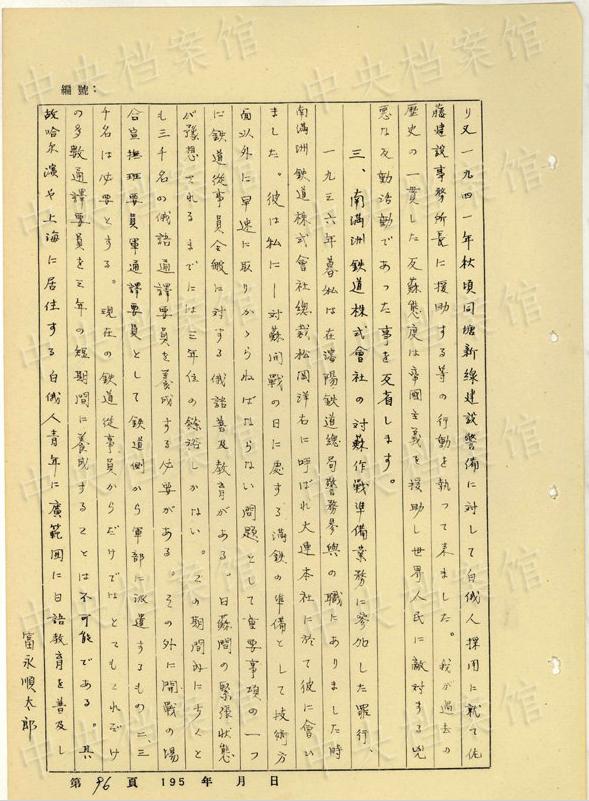 編號：
り又一九四一年秋頃同塘新線建設警備に対して白俄人採用に就て佐
藤建設事務所長に援助する等の行動を執って来ました。我が過去の
歴史の一貫した反蘇態度は帝國主義を援助し世界人民に敵対する兇
悪な反動活動であった事を反省します。
三、南満洲鉄道株式會社の対蘇作戦準備業務に参加した罪行、
一九三六年暮私は在瀋陽鉄道總局警務参與の職にありました時
南満洲鉄道株式會社總裁松岡洋右に呼ばれ大連本社に於て彼に會い
ました。彼は私に—対蘇開戦の日に處する満鉄の準備として技術方
面以外に早速に取りかゝらねばならない問題として重要事項の一つ
に鉄道從事員全般に対する俄語普及教育がある。日蘇間の緊張状態
が予想されるまでには三年位の餘裕しかない。この期間内に少くと
も三千名の俄語通譯要員を養成する必要がある。その外に開戦の場
合宣撫班要員軍通譯要員として鉄道側から軍部に派遣するもの二、三
千名は必要とする。現在の鉄道從事員からだけではとてもこれだけ
の多数通譯要員を三年の短期間に養成することは不可能である。其
故哈尔濱や上海に居住する白俄人青年に廣範囲に日語教育を普及し
富永順太郎
第 96 頁 195 年 月 日
中央档案馆